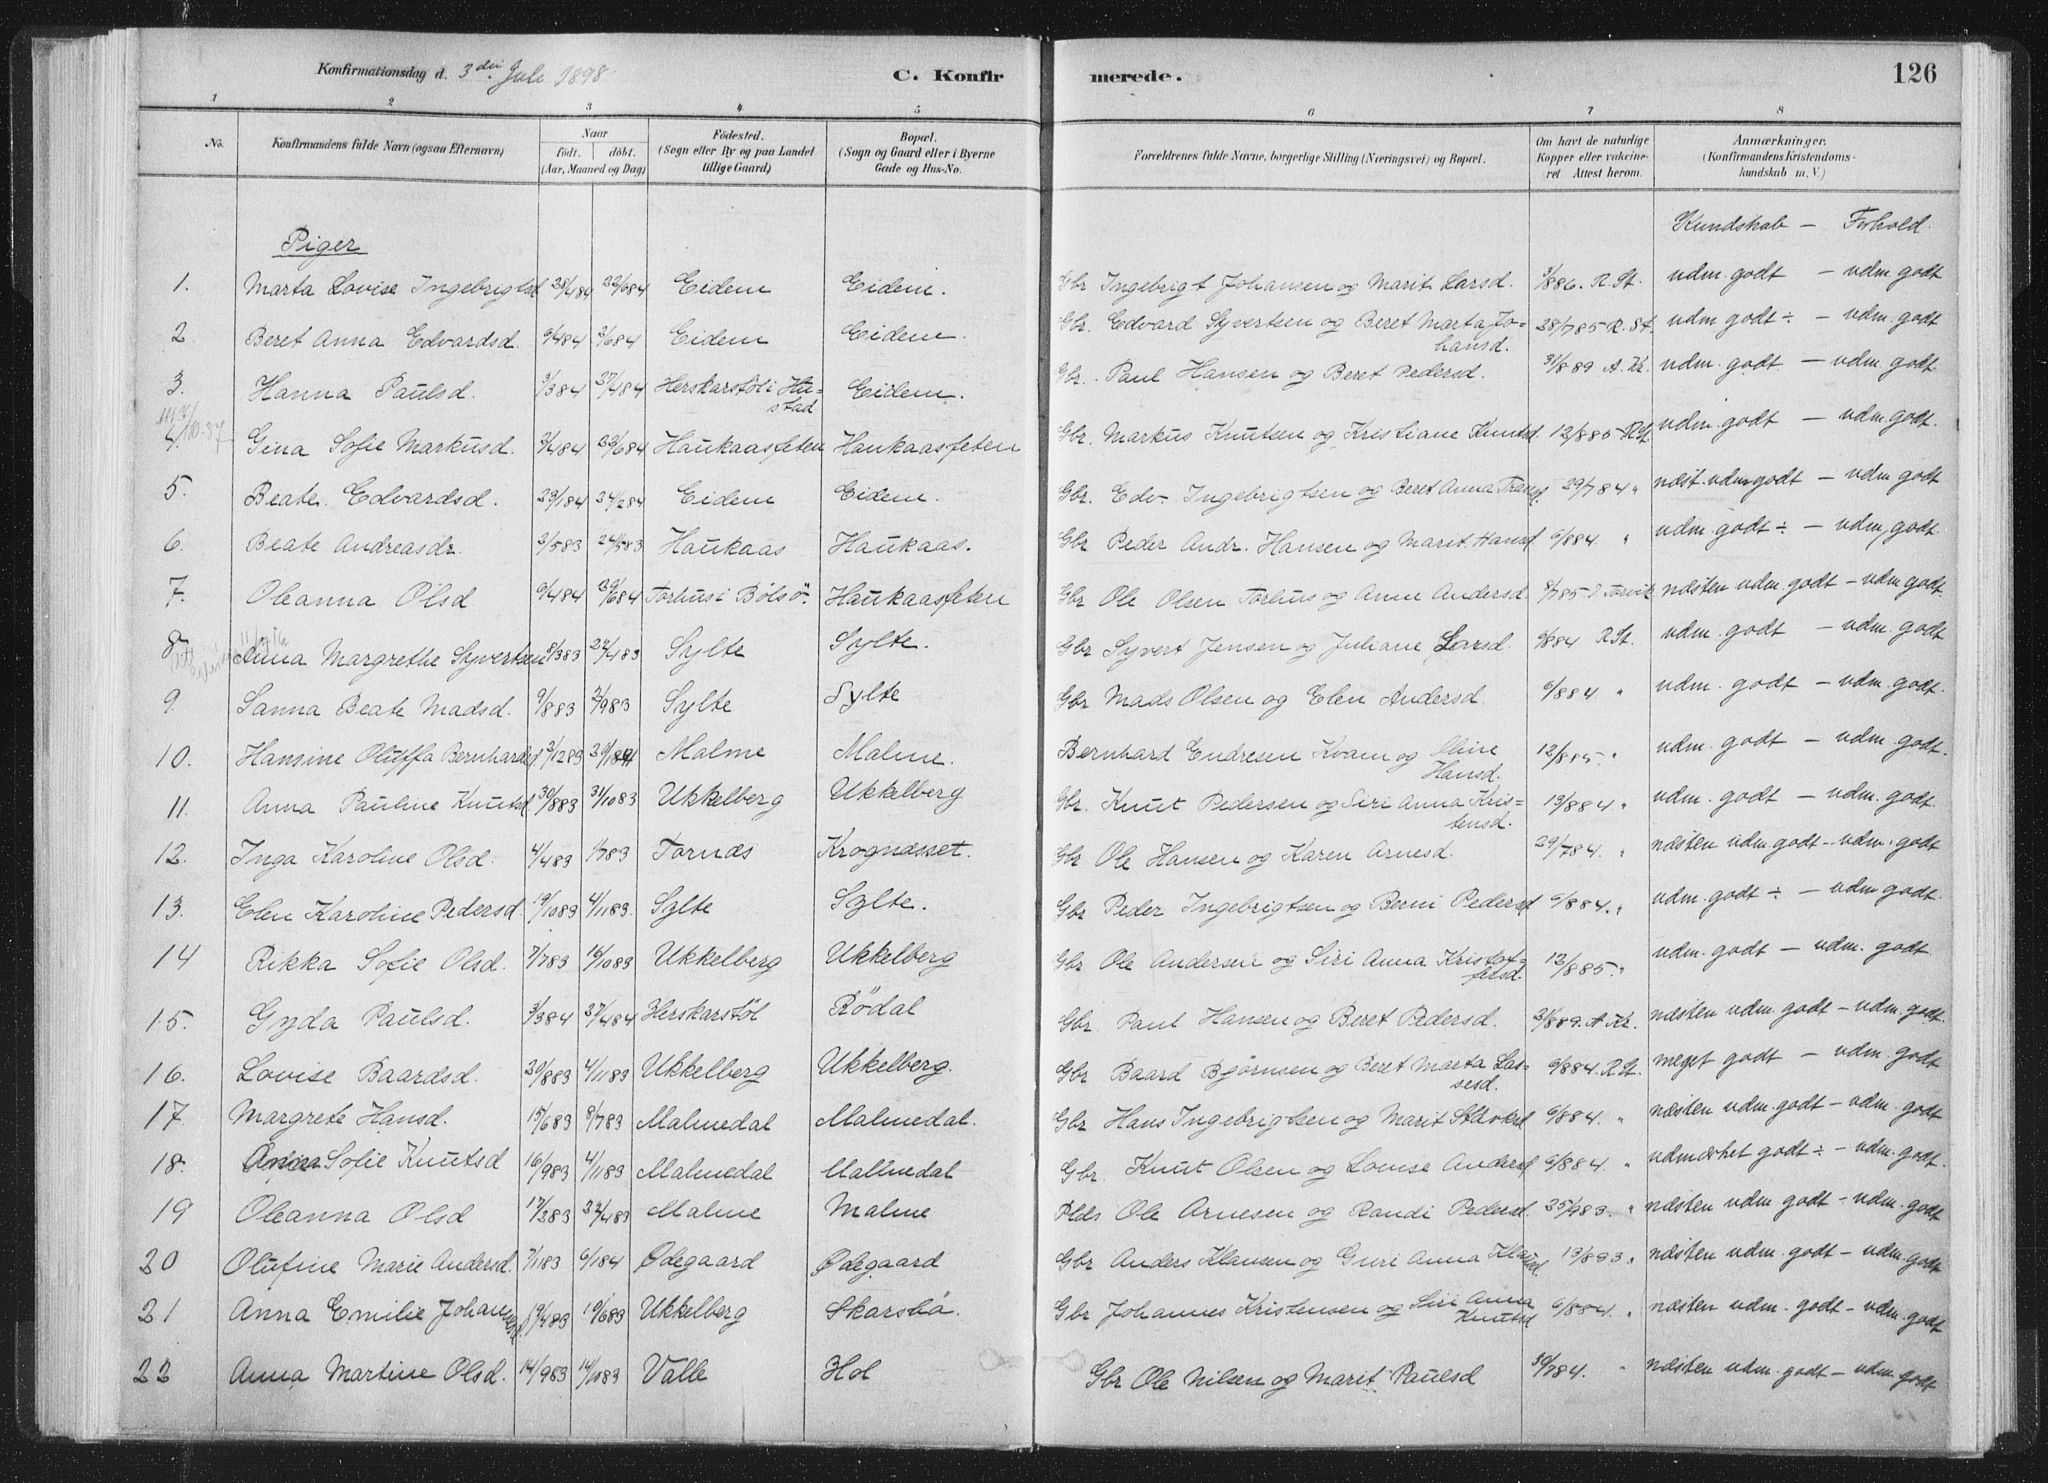 Konfirmationsdag d. 3die Juli 1898 C. Konfirmerede. 126
1 2 3 4 5 6 7 8
No. Konfirmandens fulde Navn (ogsaa Efternavn) Naar født. døbt. (Aar, Maaned og Dag) Födested. (Sogn eller By og paa Landet tillige Gaard) Bopæl. (Sogn og Gaard eller i Byerne Gade og Hus-No. Forældrenes fulde Navne, borgerlige Stilling (Næringsvei) og Bopæl. Om havt de naturlige Kopper eller vakcineret Attest herom. Anmærkninger. (Konfirmandens Kristendomskundskab m. V.)
Kundskab — Forhold.
Piger
1. Marta Lovise Ingebrigtsd 28/4 84 22/6 84 Eidem Eidem. Gbr Ingebrigt Johansen og Marit Larsd. 3/8 86. R. St. udm. godt — udm. godt
2. Beret Anna Edvardsd. 9/4 84 2/6 84 Eidem Eidem. Gbr. Edvard Syvertsen og Beret Marta Johansd. 28/7 85 R. St. udm godt ÷ — udm. godt
3. Hanna Paulsd. 3/3 84 27/4 84 Herskarstöl i Hustad Eidem. Gbr. Paul Hansen og Beret Pedersd. 31/8 89 A. Kr. udm. godt — udm. godt
4. Gina Sofie Markusd. 2/4 84 22/6 84 Haukaasfeten Haukaasfeten Gbr. Markus Knutsen og Kristiane Knutsd. 12/8 85 R St udm. godt — udm. godt.
5. Beate Edvardsd. 29/1 84 24/2 84 Eidem Eidem. Gbr. Edv. Ingebrigtsen og Beret Anna 29/7 84 " næst. udm godt — udm. godt
6. Beate Andreasdr. 2/5 83 24/5 83 Haukaas Haukaas. Gbr Peder Andr. Hansen og Marit Hansd 6/8 84. " udm. godt ÷ — udm. godt.
7. Oleanna Olsd 9/4 84 29/6 84 Torhus i Bolsö. Haukaasfeten Gbr Ole Olsen Torhus og Anne Andersd. 8/7 85 næsten udm. godt — udm godt.
8. Anna Margrethe Syvertsen 8/3 83 22/4 83 Sylte Sylte. Gbr Syvert Jensen og Juliane Larsd. 6/8 84 R St. udm. godt — udm. godt
9. Sanna Beate Madsd. 9/8 83 2/9 83 Sylte Sylte Gbr Mads Olsen og Elen Andersd. 6/8 84. " udm. godt — udm. godt.
10. Hansine Oluffa Bernhardsd. 2/12 83 20/1 84 Malme Malme. Bernhard Endresen Kvam og Oline Hansd. 12/8 85. " udm. godt — udm. godt.
11. Anna Pauline Knutsd 30/8 83 31/10 83 Ukkelberg Ukkelberg Gbr. Knut Pedersen og Siri Anna Kristensd. 13/8 84. " udm. godt — udm. godt.
12. Inga Karoline Olsd. 4/4 83 1/7 83 Tornæs Krognæsset. Gbr Ole Hansen og Karen Arnesd. 29/7 84. " næsten udm godt — udm. godt
13. Elen Karoline Pedersd. 19/10 83 4/11 83. Sylte Sylte. Gbr Peder Ingebrigtsen og Berni Pedersd 6/8 84. " udm. godt ÷ — udm godt.
14 Rikka Sofie Olsd. 7/7 83 16/10 83 Ukkelberg Ukkelberg Gbr Ole Andersen og Siri Anna Kristoffersd. 12/8 85. " udm. godt — udm. godt
15. Gyda Paulsd. 3/3 84 27/4 84 Herskarstöl Rödal Gbr. Paul Hansen og Beret Pedersd. 31/8 89. A Kr. næsten udm. godt — udm. godt.
16. Lovise Baardsd. 20/8 83 4/11 83 Ukkelberg Ukkelberg. Gbr Baard Bjørnsen og Beret Marta Lassesd. 6/8 84. R St. meget godt — udm. godt
17. Margrete Hansd. 15/6 83 8/7 83 Malmedal Malmedal. Gbr Hans Ingebrigtsen og Marit 6/8 84. " næsten udm. godt — udm. godt
18. Sofie Knutsd 16/9 83 4/11 83 Malmedal Malmedal Gbr. Knut Olsen og Lovise Andersd 6/8 84. " udmærket godt ÷ — udm. godt.
19 Oleanna Olsd 17/2 83 22/4 83 Malme Malme Plds Ole Arnesen og Randi Pedersd. 25/9 83. " næsten udm godt — udm. godt
20 Olufine Marie Andersd. 7/11 83 6/1 84 Ødegaard Ødegaard Gbr Anders Klausen og Guri Anna 13/8 93. " næsten udm. godt — udm. godt
21 Anna Emilie Johannesd. 19/4 83 10/6 83 Ukkelberg Skarsbö. Gbr Johannes Kristensen og Siri Anna Knutsd 6/8 84. " næsten udm. godt — udm. godt
22 Anna Martine Olsd. 14/9 83 14/10 83 Valle Hol Gbr Ole Nilsen og Marit Paulsd 30/7 84. " næsten udm. godt — udm. godt